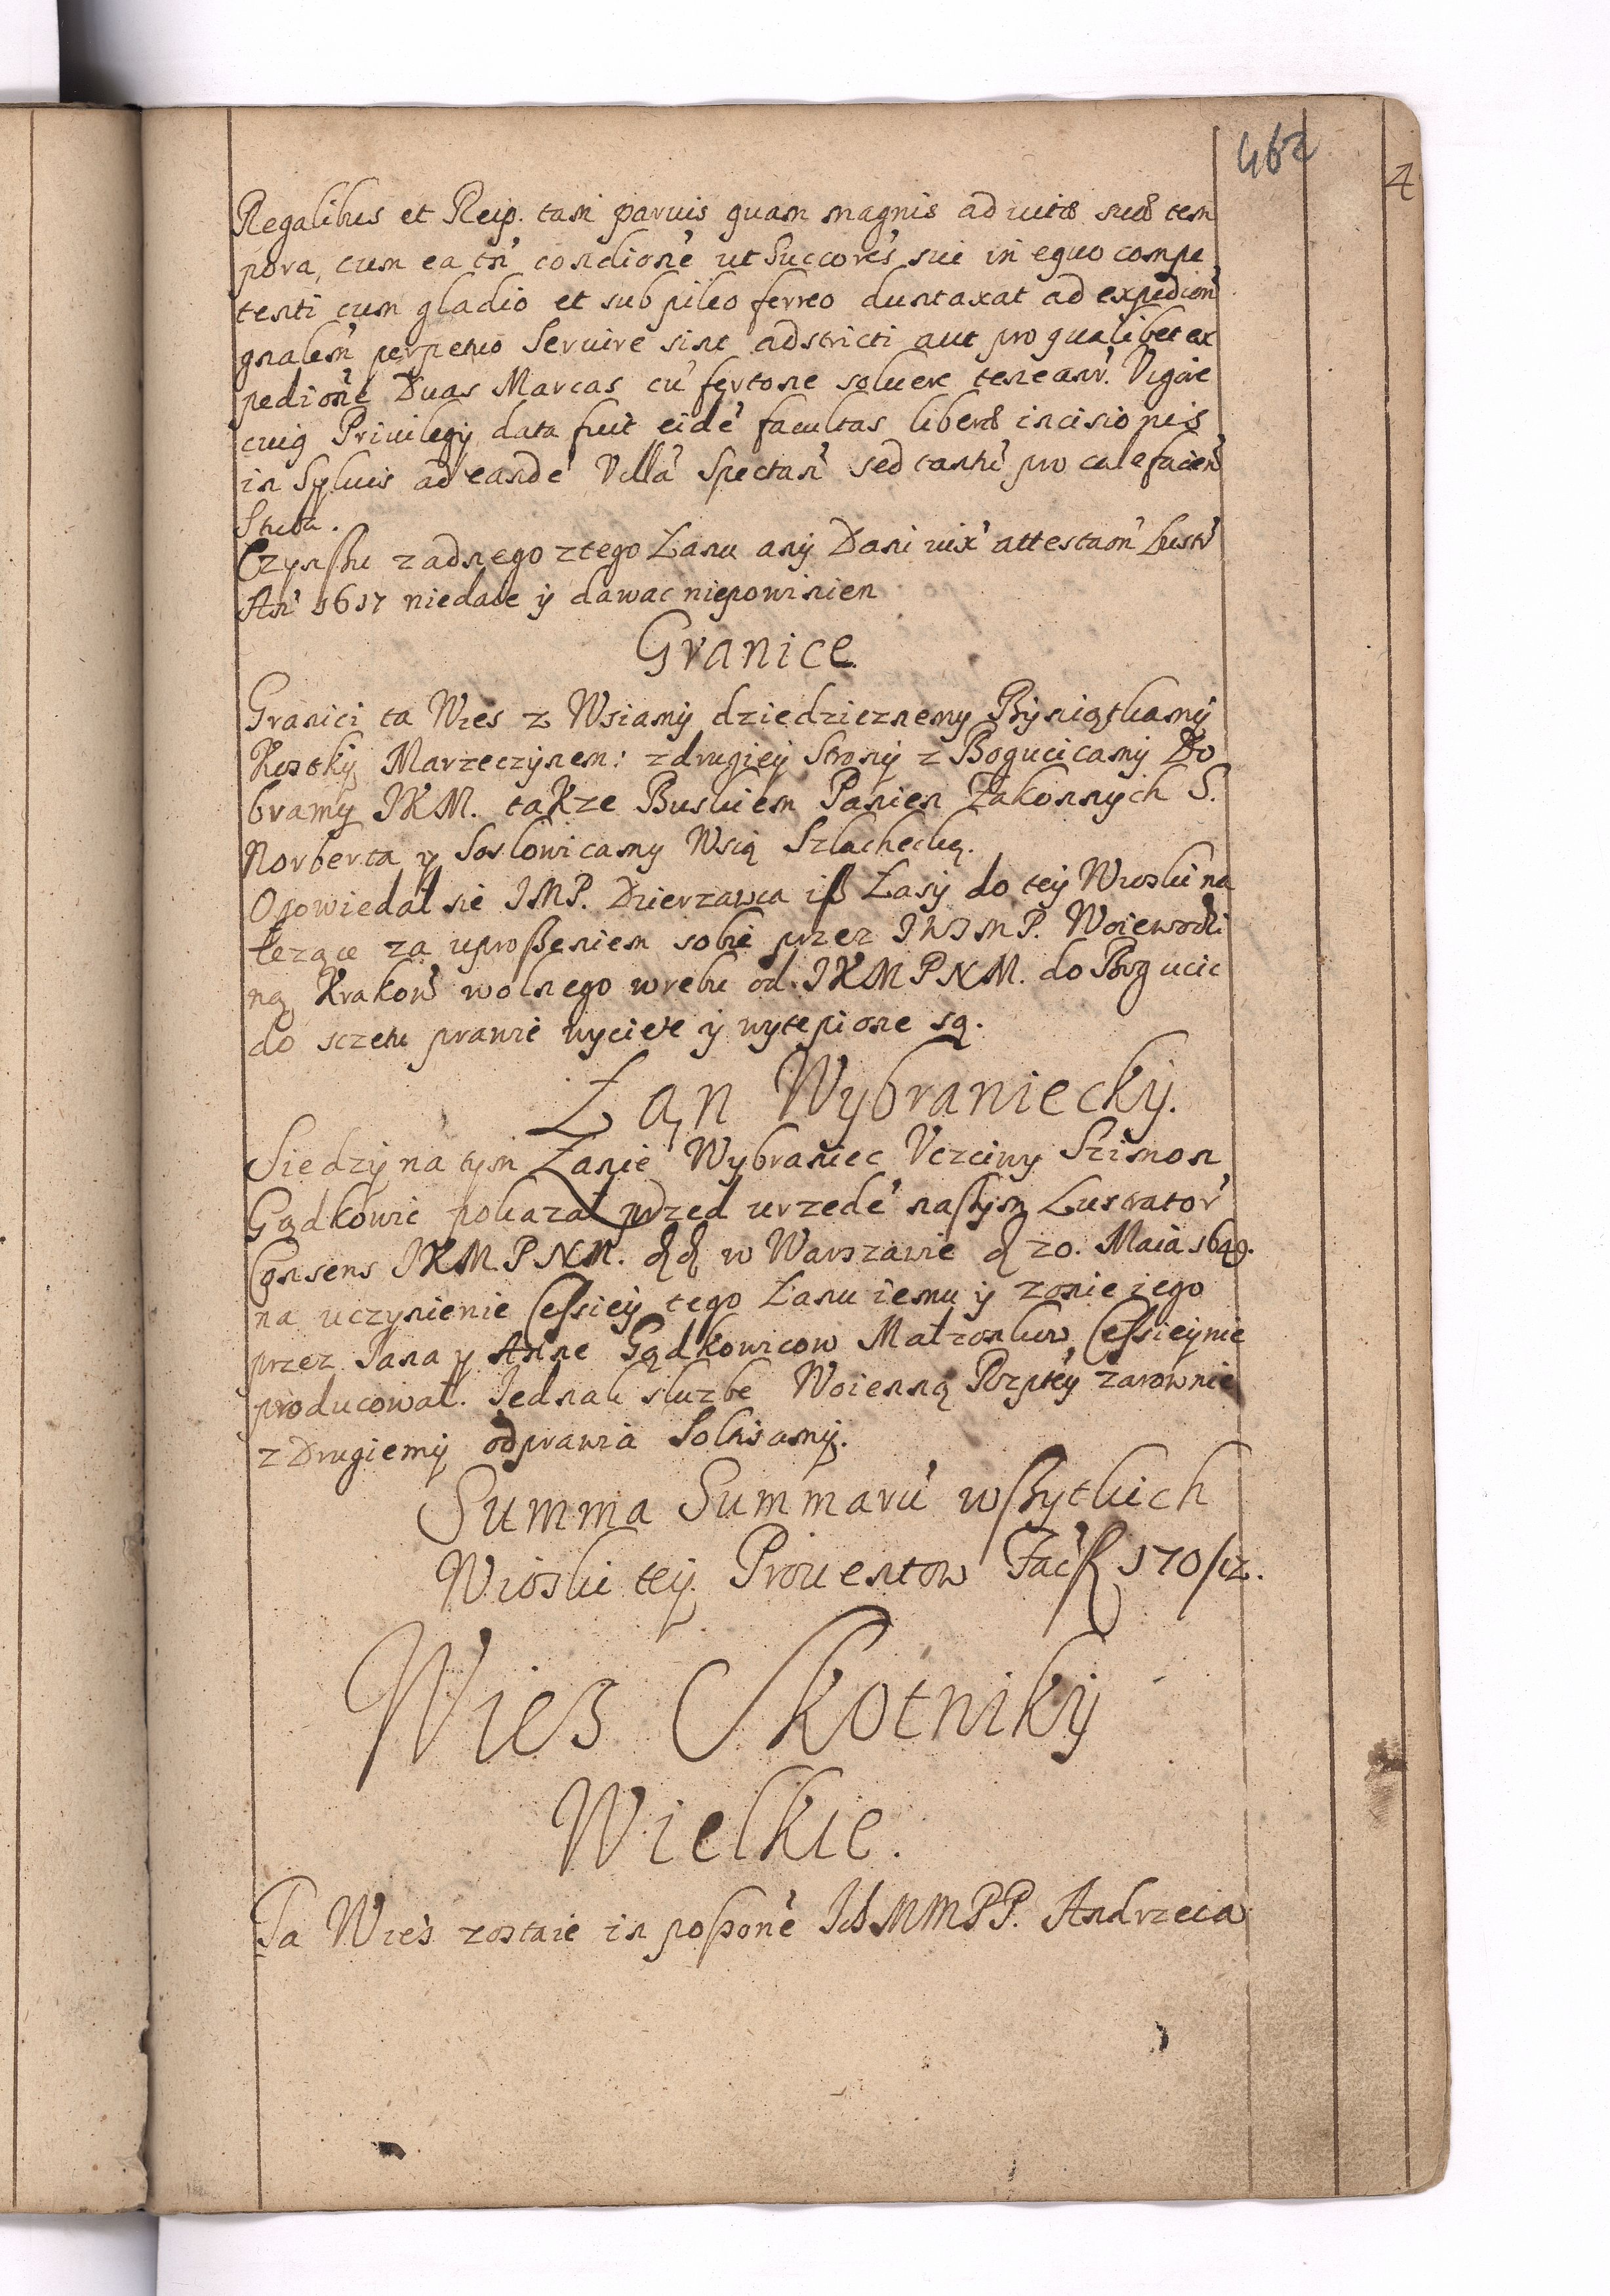 462
4
Regalibus et Reip. tam paruis quam magnis ad vitæ suæ tem
pora, cum ea tn̄ condione ut Succores sui in equo compe
tenti cum gladio et sub pileo ferreo duntaxat ad expedion
gnalem perpetuo Seruire sint adstricti aut pro qualibet ex
pedione Duas Marcas cu fertone soluere teneanr. Vigore
cuig Priuilegij data fuit eidē facultas liberæ incisionis
in Syluis ad eandē Villā Spectan̄ sed tantū pro calefacien
Stuba.
Czynszu zadnego z tego Łanu any Dani iux attestaon Lustr
An 1617 niedaie y dawac niepowinien
Granice
Granici ta Wies z Wsiamy dziedzicznemy
Marzeczynem: zdrugiey Strony z Bogucicamy Do
bramy JKM. takze Buskiem Panien Zakonnych S.
Norberta y Soslowicamy Wsią Szlachecką.
Opowiedał sie JMP. Dzierzawca iß Lasy do tey Wioski na
lezące za uproszeniem sobie przez JWJMP. Woiewodzi
ną Krakow wolnego wrebu od JKMPNM. do Bogucic
do sczetu prawie wyciete y wytepione są.
Łan Wybraniecky.
Siedzy na tym Łanie Wybraniec Vczciwy Szimon
Gądkowic pokazał przed urzedē naszym Lustrator
Consens JKMPNM. dd w Warszawie d 20. Maia 1649.
na uczynienie Cessiey tego Łanu iemu y zonie iego
przez Jana y Anne Gądkowicow Małzonkow, Cessiey nie
producował. Jednak sluzbe Woienną Rzptey zarownie
z Drugiemy odprawia Soltisamy.
Summa Summarū wszytkich
Wioski tey Prouentow Facit 170/12.
Wies Skotniky
Wielkie.
Ta Wies zostaie in possone IchMMPP. Andrzeia